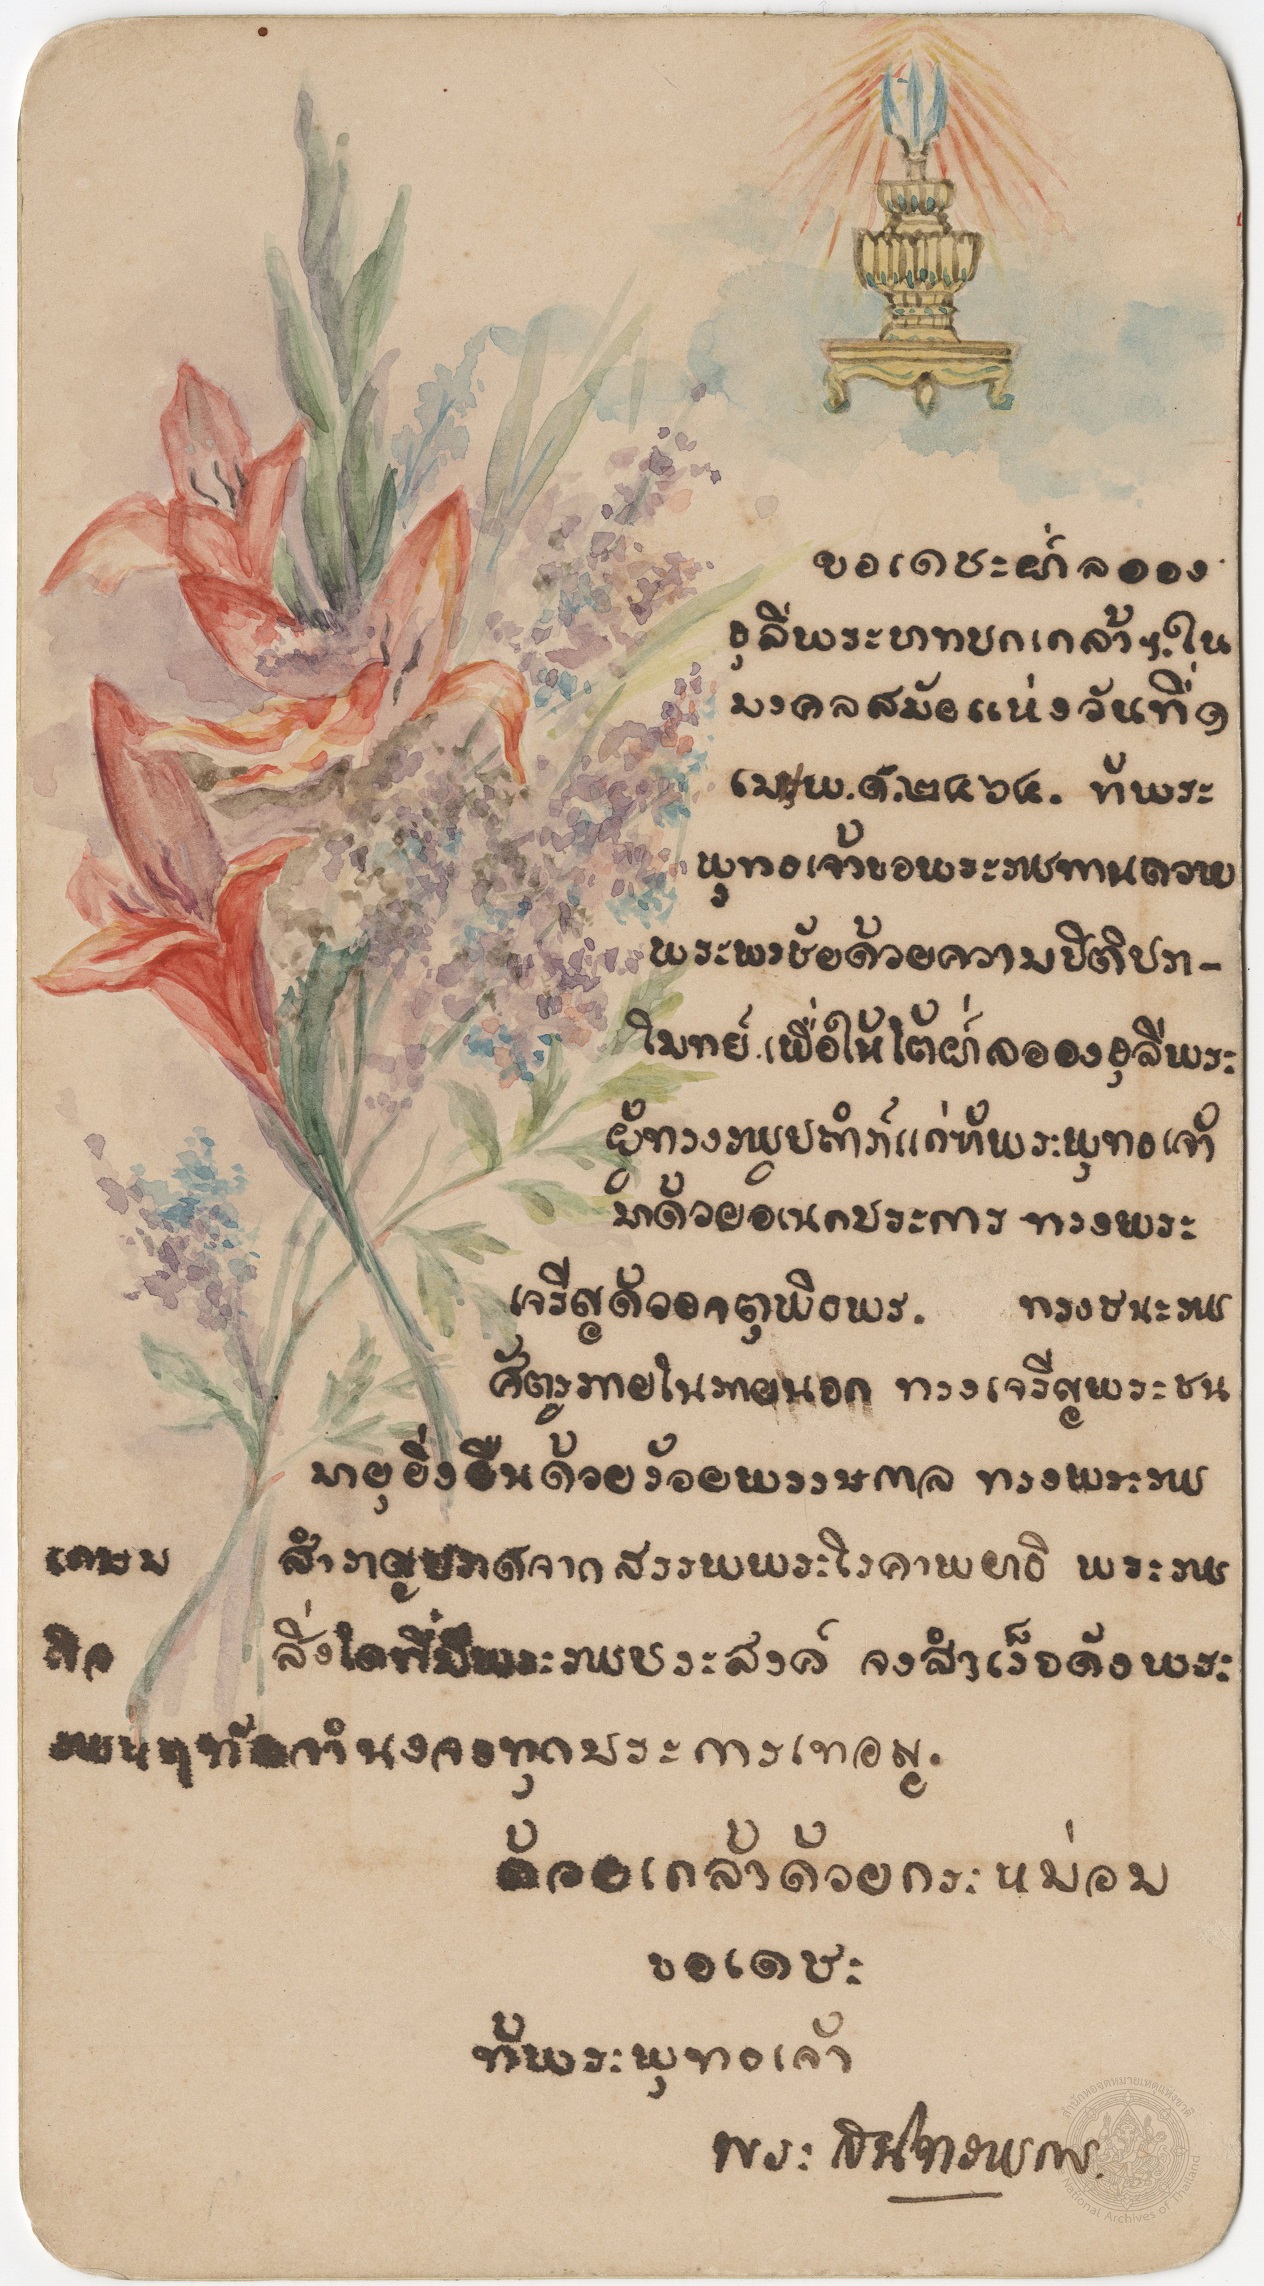 ขอเดชะฝ่าลออง
ธุลีพระบาทปกเกล้าฯ ใน
มงคลสมัยแห่งวันที่ ๑
เมษ พ.ศ. ๒๔๖๔. ข้าพระ
พุทธเจ้าขอพระราชทานถวาย
พระพรชัยด้วยความปีติปรา-
โมทย์ เพื่อให้ใต้ฝ่าลอองธุลีพระ
ผู้ทรงราชูปถำภ์แก่ข้าพระพุทธเจ้า
มาด้วยอเนกประการ ทรงพระ
เจริญด้วยจตุพิธพร. ทรงชนะราช
ศัตรูภายในภายนอก ทรงเจริญพระชน
มายุยิ่งยืนด้วยร้อยพรรษกาล ทรงพระราช
เกษม สำราญปราศจากสรรพพระโรคาพยาธิ พระราช
กิจ สิ่งใดที่มีพระราชประสงค์ จงสำเร็จดังพระ
ราชหฤทัยจำนงจงทุกประการเทอญ.
ด้วยเกล้าด้วยกระหม่อม
ขอเดชะ
ข้าพระพุทธเจ้า
พระ
สำนักหอจดหมายเหตุแห่งชาติ
National Archives of Thailand